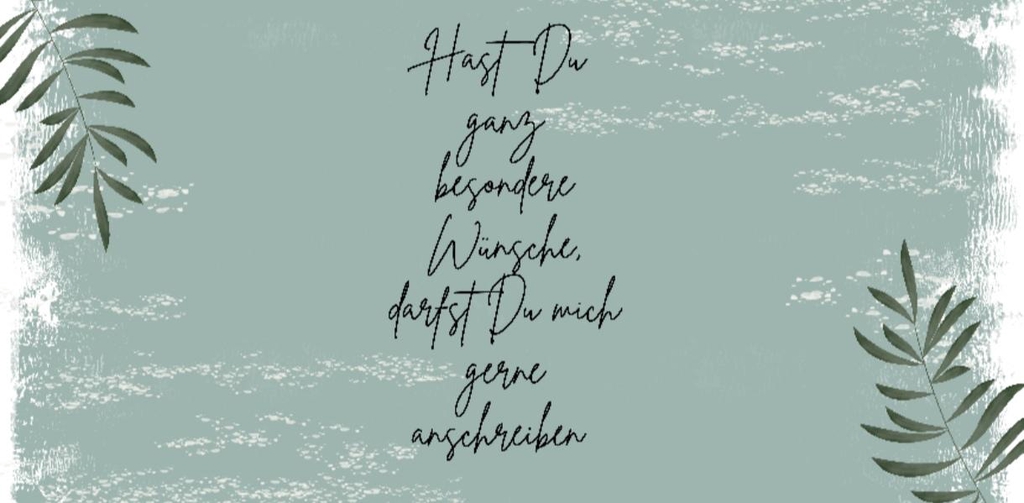 Hast Du
ganz
besondere
Wünsche,
darfst Du mich
gerne
anschreiben